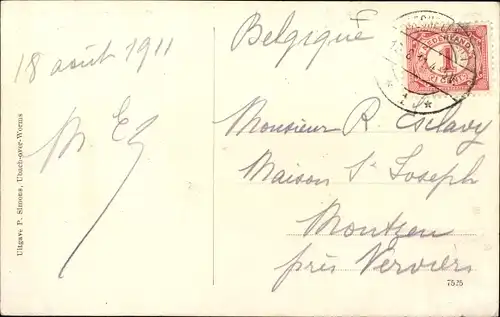 18 août 1911
Belgique
NEDERLAND
1
Monsieur R. Esclavy
Maison St Joseph
Montzen
près Verviers
Uitgave P. Simons, Ubach-over-Worms
7525